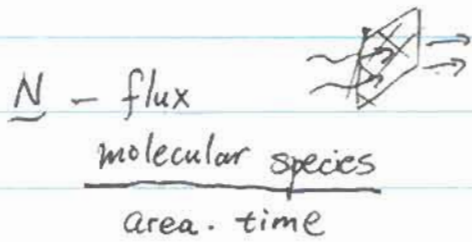 N - flux
molecular species
area. time